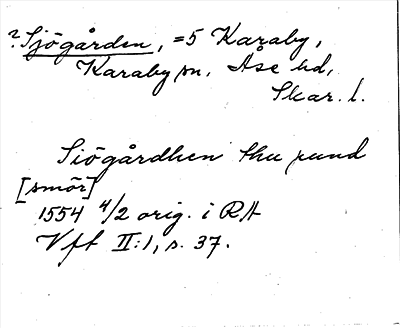 ? Sjögården, =5 Karaby,
Karaby sn. Åse hd,
Skar. l.
Siögårdhen thu pund
[smör]
1554 4/2 orig. i RA
Vft II:1, s. 37.